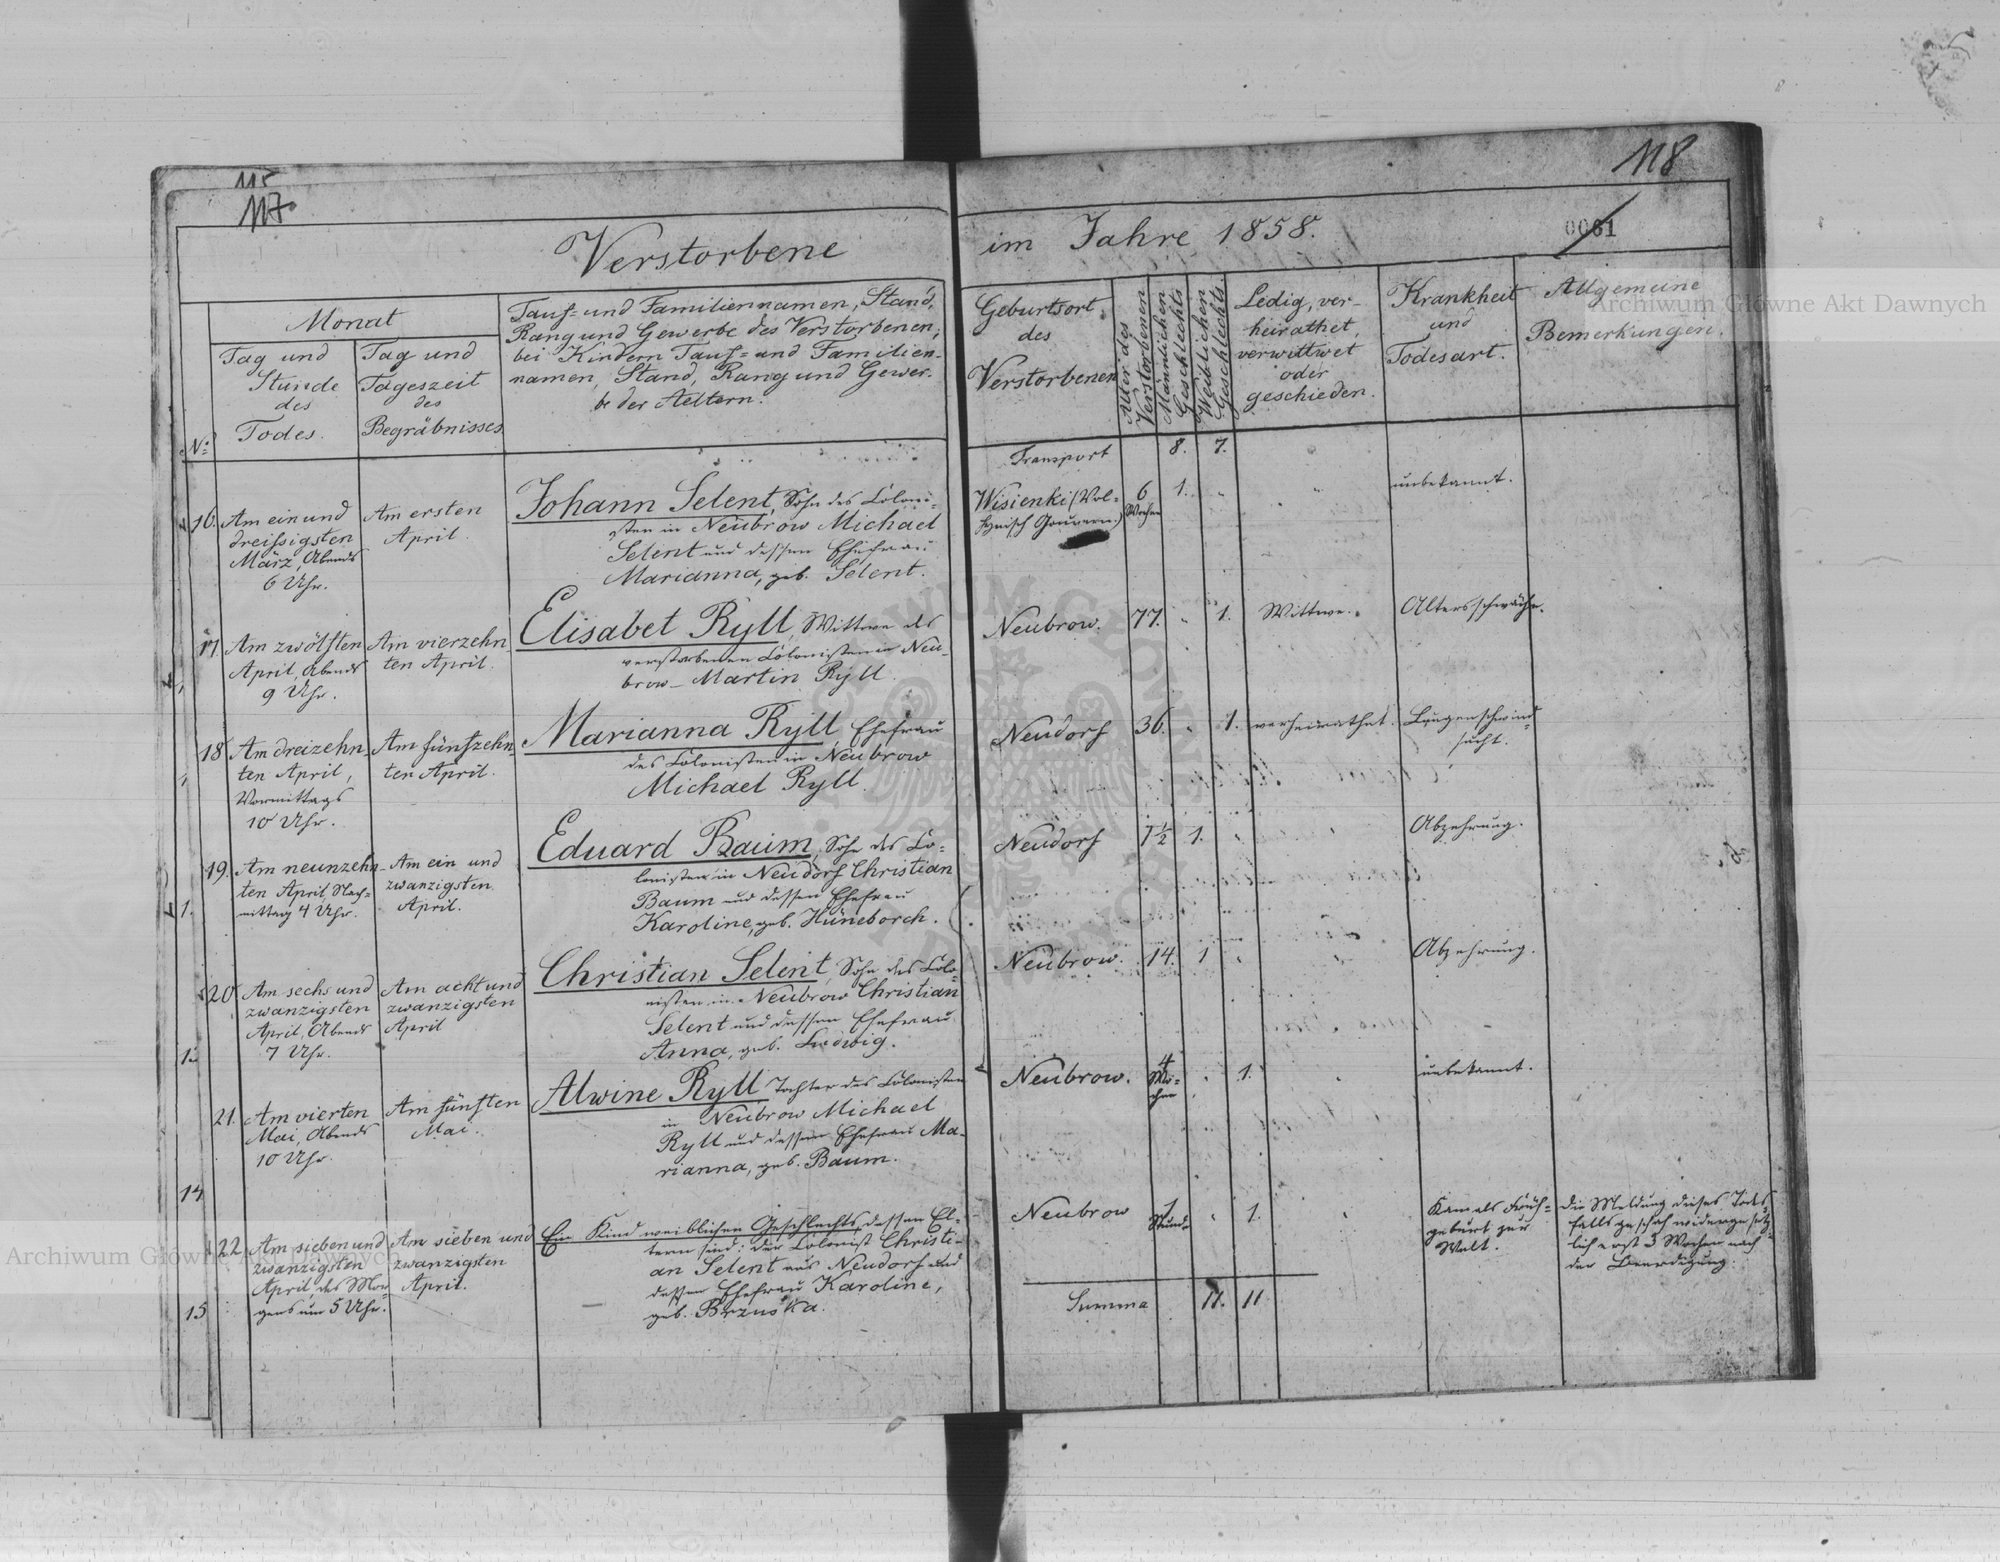 115
117.
118
0061
Verstorbene
im Jahre 1858.
Monat
Tag und
Stunde
des
Todes.
Tag und
Tageszeit
des
Begräbnisses
Tauf- und Familiennamen, Stand,
Rang und Gewerbe des Verstorbenen,
bei Kindern Tauf- und Familien-
namen, Stand, Rang und Gewer-
be der Aeltern.
No
Geburtsort
des
Verstorbenen
Alter des
Verstorbenen
Männlichen
Geschlechts
Weiblichen
Geschlechts
Ledig, ver-
heirathet,
verwittwet
oder
geschieden.
Krankheit
und
Todesart.
Allgemeine
Bemerkungen.
Transport 8. 7.
16. Am ein und
dreissigsten
März, Abends
6 Uhr.
Am ersten
April.
Johann Selent, Sohn des Coloni-
sten in Neubrow Michael
Selent und dessen Ehefrau
Marianna, geb. Selent.
Wisienki (Vol-
hynisch Gouvern.)
6
Wochen
1. „ „ unbekannt.
17. Am zwölften
April, Abends
9 Uhr.
Am vierzehn
ten April.
Elisabet Ryll, Wittwe des
verstorbenen Colonisten in Neu-
brow – Martin Ryll.
Neubrow. 77. „ 1. Wittwe. Altersschwäche.
18. Am dreizehn-
ten April,
Vormittags
10 Uhr.
Am fünfzehn-
ten April.
Marianna Ryll Ehefrau
des Colonisten in Neubrow
Michael Ryll.
Neudorf 36. „ 1. verheirathet. Lungenschwind-
sucht.
19. Am neunzehn-
ten April, Nach-
mittag 4 Uhr.
Am ein und
zwanzigsten
April.
Eduard Baum, Sohn des Co-
lonisten in Neudorf Christian
Baum und dessen Ehefrau
Karoline, geb. Hüneborch.
Neudorf 1½ 1. „ „ Abzehrung.
20. Am sechs und
zwanzigsten
April, Abends
7 Uhr.
Am acht und
zwanzigsten
April
Christian Selent, Sohn des Colo-
nisten in Neubrow Christian
Selent und dessen Ehefrau
Anna, geb. Ludwig.
Neubrow. 14. 1 „ „ Abzehrung.
21. Am vierten
Mai, Abends
10 Uhr.
Am fünften
Mai.
Alwine Ryll Tochter des Colonisten
in Neubrow Michael
Ryll und dessen Ehefrau Ma-
rianna, geb. Baum.
Neubrow. 4
Wo-
chen
„ 1. „ unbekannt.
22. Am sieben und
zwanzigsten
April, des Mor-
gens um 5 Uhr.
Am sieben und
zwanzigsten
April.
Ein Kind weiblichen Geschlechts, dessen El-
tern sind: der Colonist Christi-
an Selent aus Neudorf und
dessen Ehefrau Karoline,
geb. Brzuska.
Neubrow 1
Stunde
„ 1. „ Kam als Früh-
geburt zur
Welt.
Die Meldung dieses Todes-
falls geschah widergesetz-
lich erst 3 Wochen nach
der Beerdigung.
Summa 11. 11
1.
14
15
Archiwum Główne Akt Dawnych
Archiwum Główne Akt Dawnych